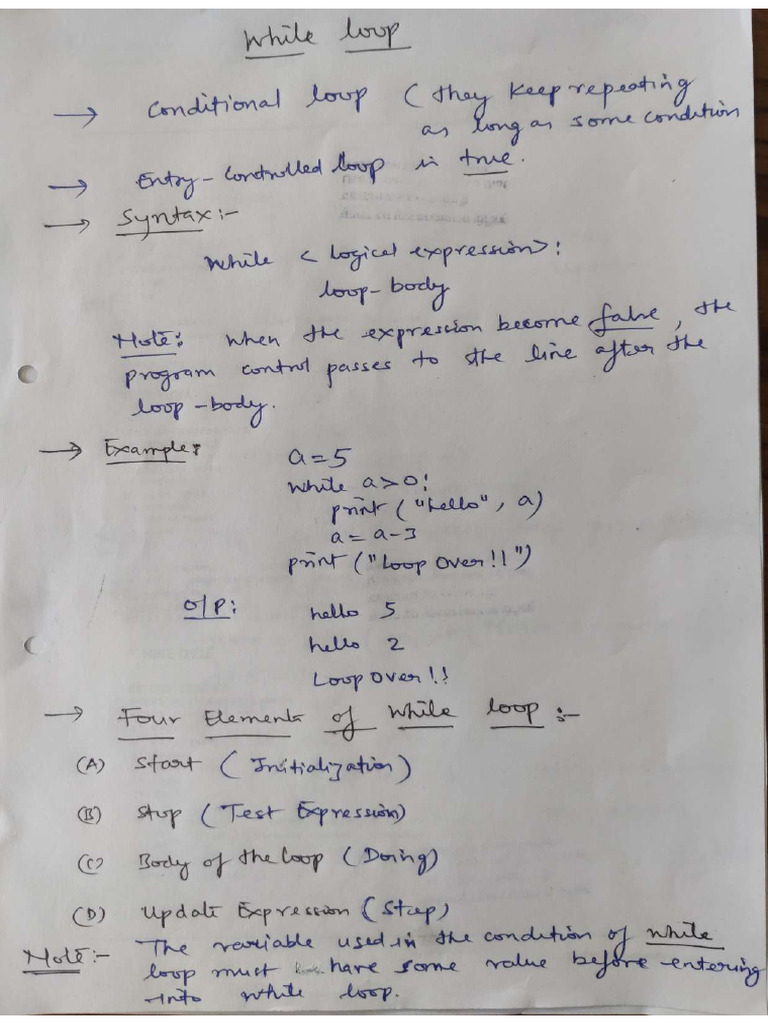 While loop
→ Conditional loop (they keep repeating
as long as some condition
is true.
→ Entry-controlled loop
→ Syntax:-
while < logical expression>:
loop-body
Note: when the expression become false, the
program control passes to the line after the
loop-body.
→ Example:
a=5
while a>0:
print ("hello", a)
a = a-3
print ("Loop Over!!")
O/P:
hello 5
hello 2
Loop Over!!
→ Four Elements of while loop :-
(A) Start (Initialization)
(B) Stop (Test Expression)
(C) Body of the loop (Doing)
(D) Update Expression (Step)
Note:- The variable used in the condition of while
loop must have some value before entering
into while loop.